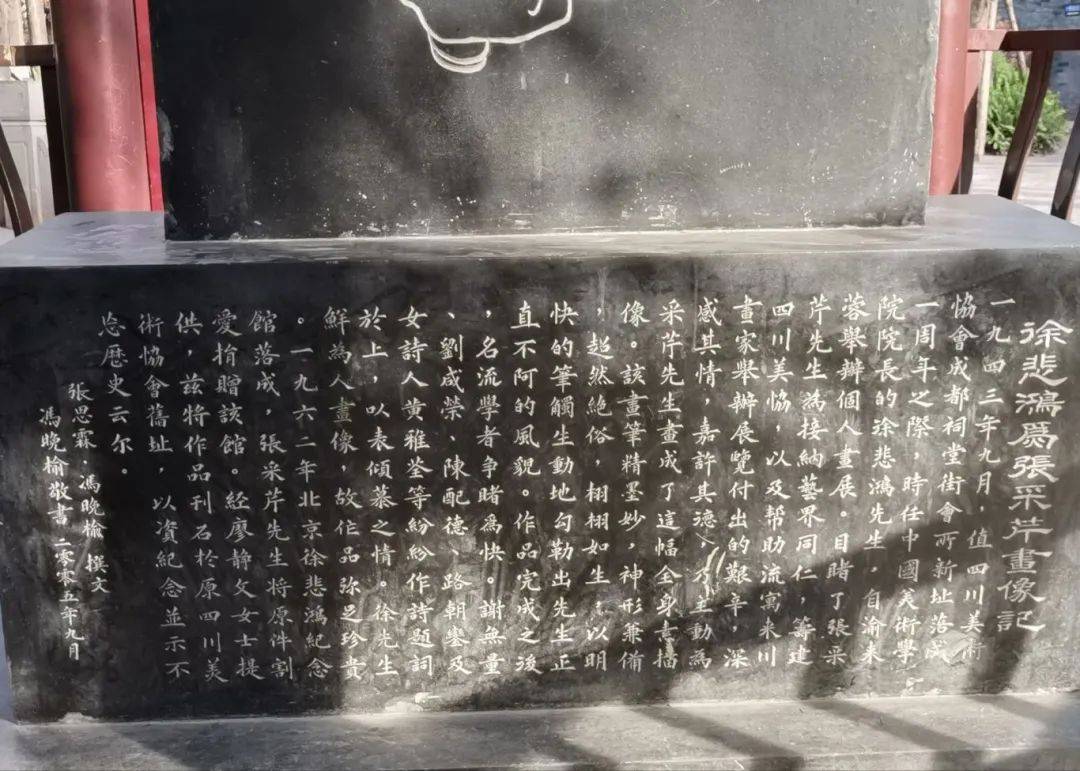 徐悲鴻爲張采芹畫像記
一九四三年九月,值四川美術
協會成都祠堂街會所新址落成
一周年之際,時任中國美術學
院院長的徐悲鴻先生,自渝来
蓉舉辦個人畫展。目睹了張采
芹先生爲接納藝界同仁,籌建
四川美協,以及帮助流寓来川
畫家舉辦展覽付出的艱辛,深
感其情,嘉許其德,才主動爲
采芹先生畫成了這幅全身素描
像。該畫筆精墨妙,神形兼備
,超然絶俗,栩栩如生;以明
快的筆觸生動地勾勒出先生正
直不阿的風貌。作品完成之後
,名流學者争睹爲快。謝無量
、劉咸滎、陳配德、路朝鑾及
女詩人黄稚荃等紛紛作詩題詞
於上,以表傾慕之情。徐先生
鮮爲人畫像,故作品弥足珍貴
。一九六二年北京徐悲鴻紀念
館落成,張采芹先生將原件割
愛捐贈該館。經廖静文女士提
供,兹將作品刊石於原四川美
術協會舊址,以資紀念並示不
忘歷史云尔。
張思霖·馮晚榆 撰文
馮晚榆敬書 二零零五年九月